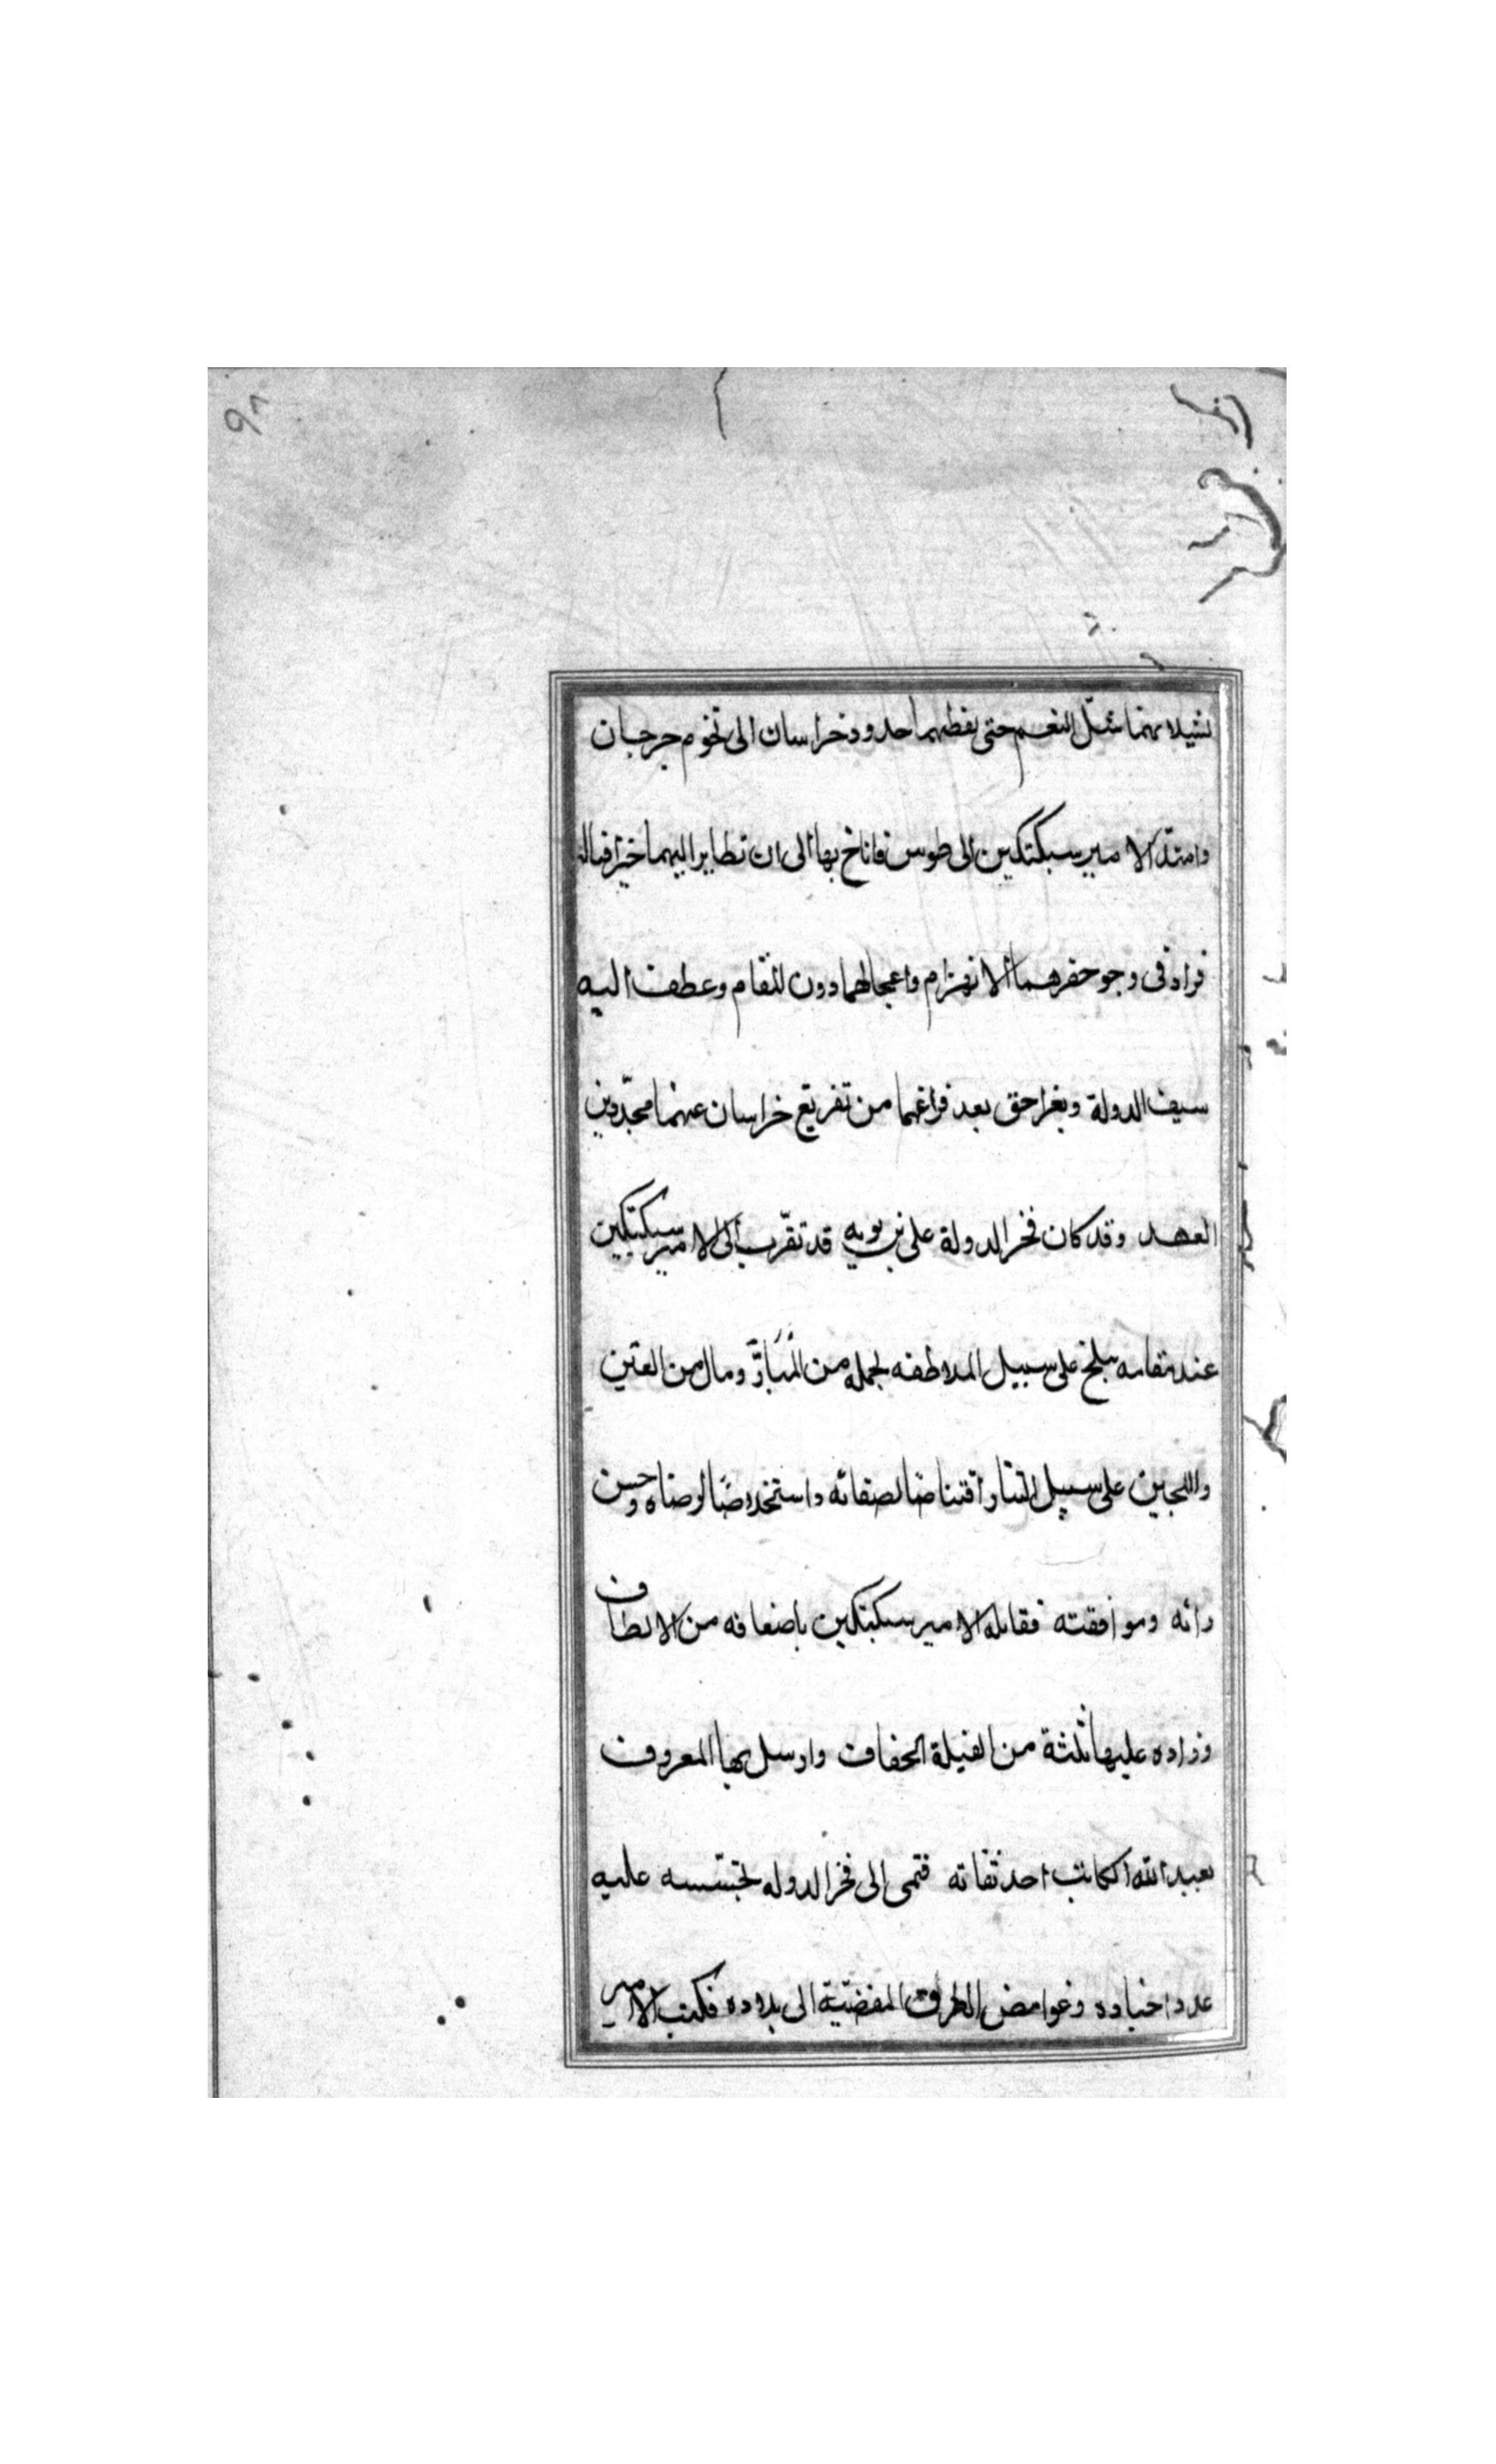 ٩٨
يشلانهما شلّ النعم حتى لفظهما حدود خراسان الى تخوم جرجان
وامتدّ الامير سبكتكين الى طوس فاناخ بها الى ان تطاير اليهما خبر
فزاد فى وجو حفزهما الانهزام واعجالهما دون المقام وعطف اليه
سيف الدولة وبغراجق بعد فراغهما من تفريغ خراسان عنهما مجدّدين
العهد وقد كان فخر الدولة على بن بويه قد تقرّب الى الامير سبكتكين
عند مقامه ببلخ على سبيل الملاطفه بجمله من المَبَارِّ ومال من العين
واللجين على سبيل النثار اقتناصًا لصفائه واستخلاصًا لرضاه وحسن
رائه وموافقته فقابله الامير سبكتكين باضعافه من الالطاف
وزاده عليها ثلثة من الفيلة الخفاف وارسل بها المعروف
بعبد الله الكاتب احد ثقاته فنمى الى فخر الدوله تجسّسه عليه
عدد اخباده وغوامض الطرق المفضية الى بلاده فكتب الامير